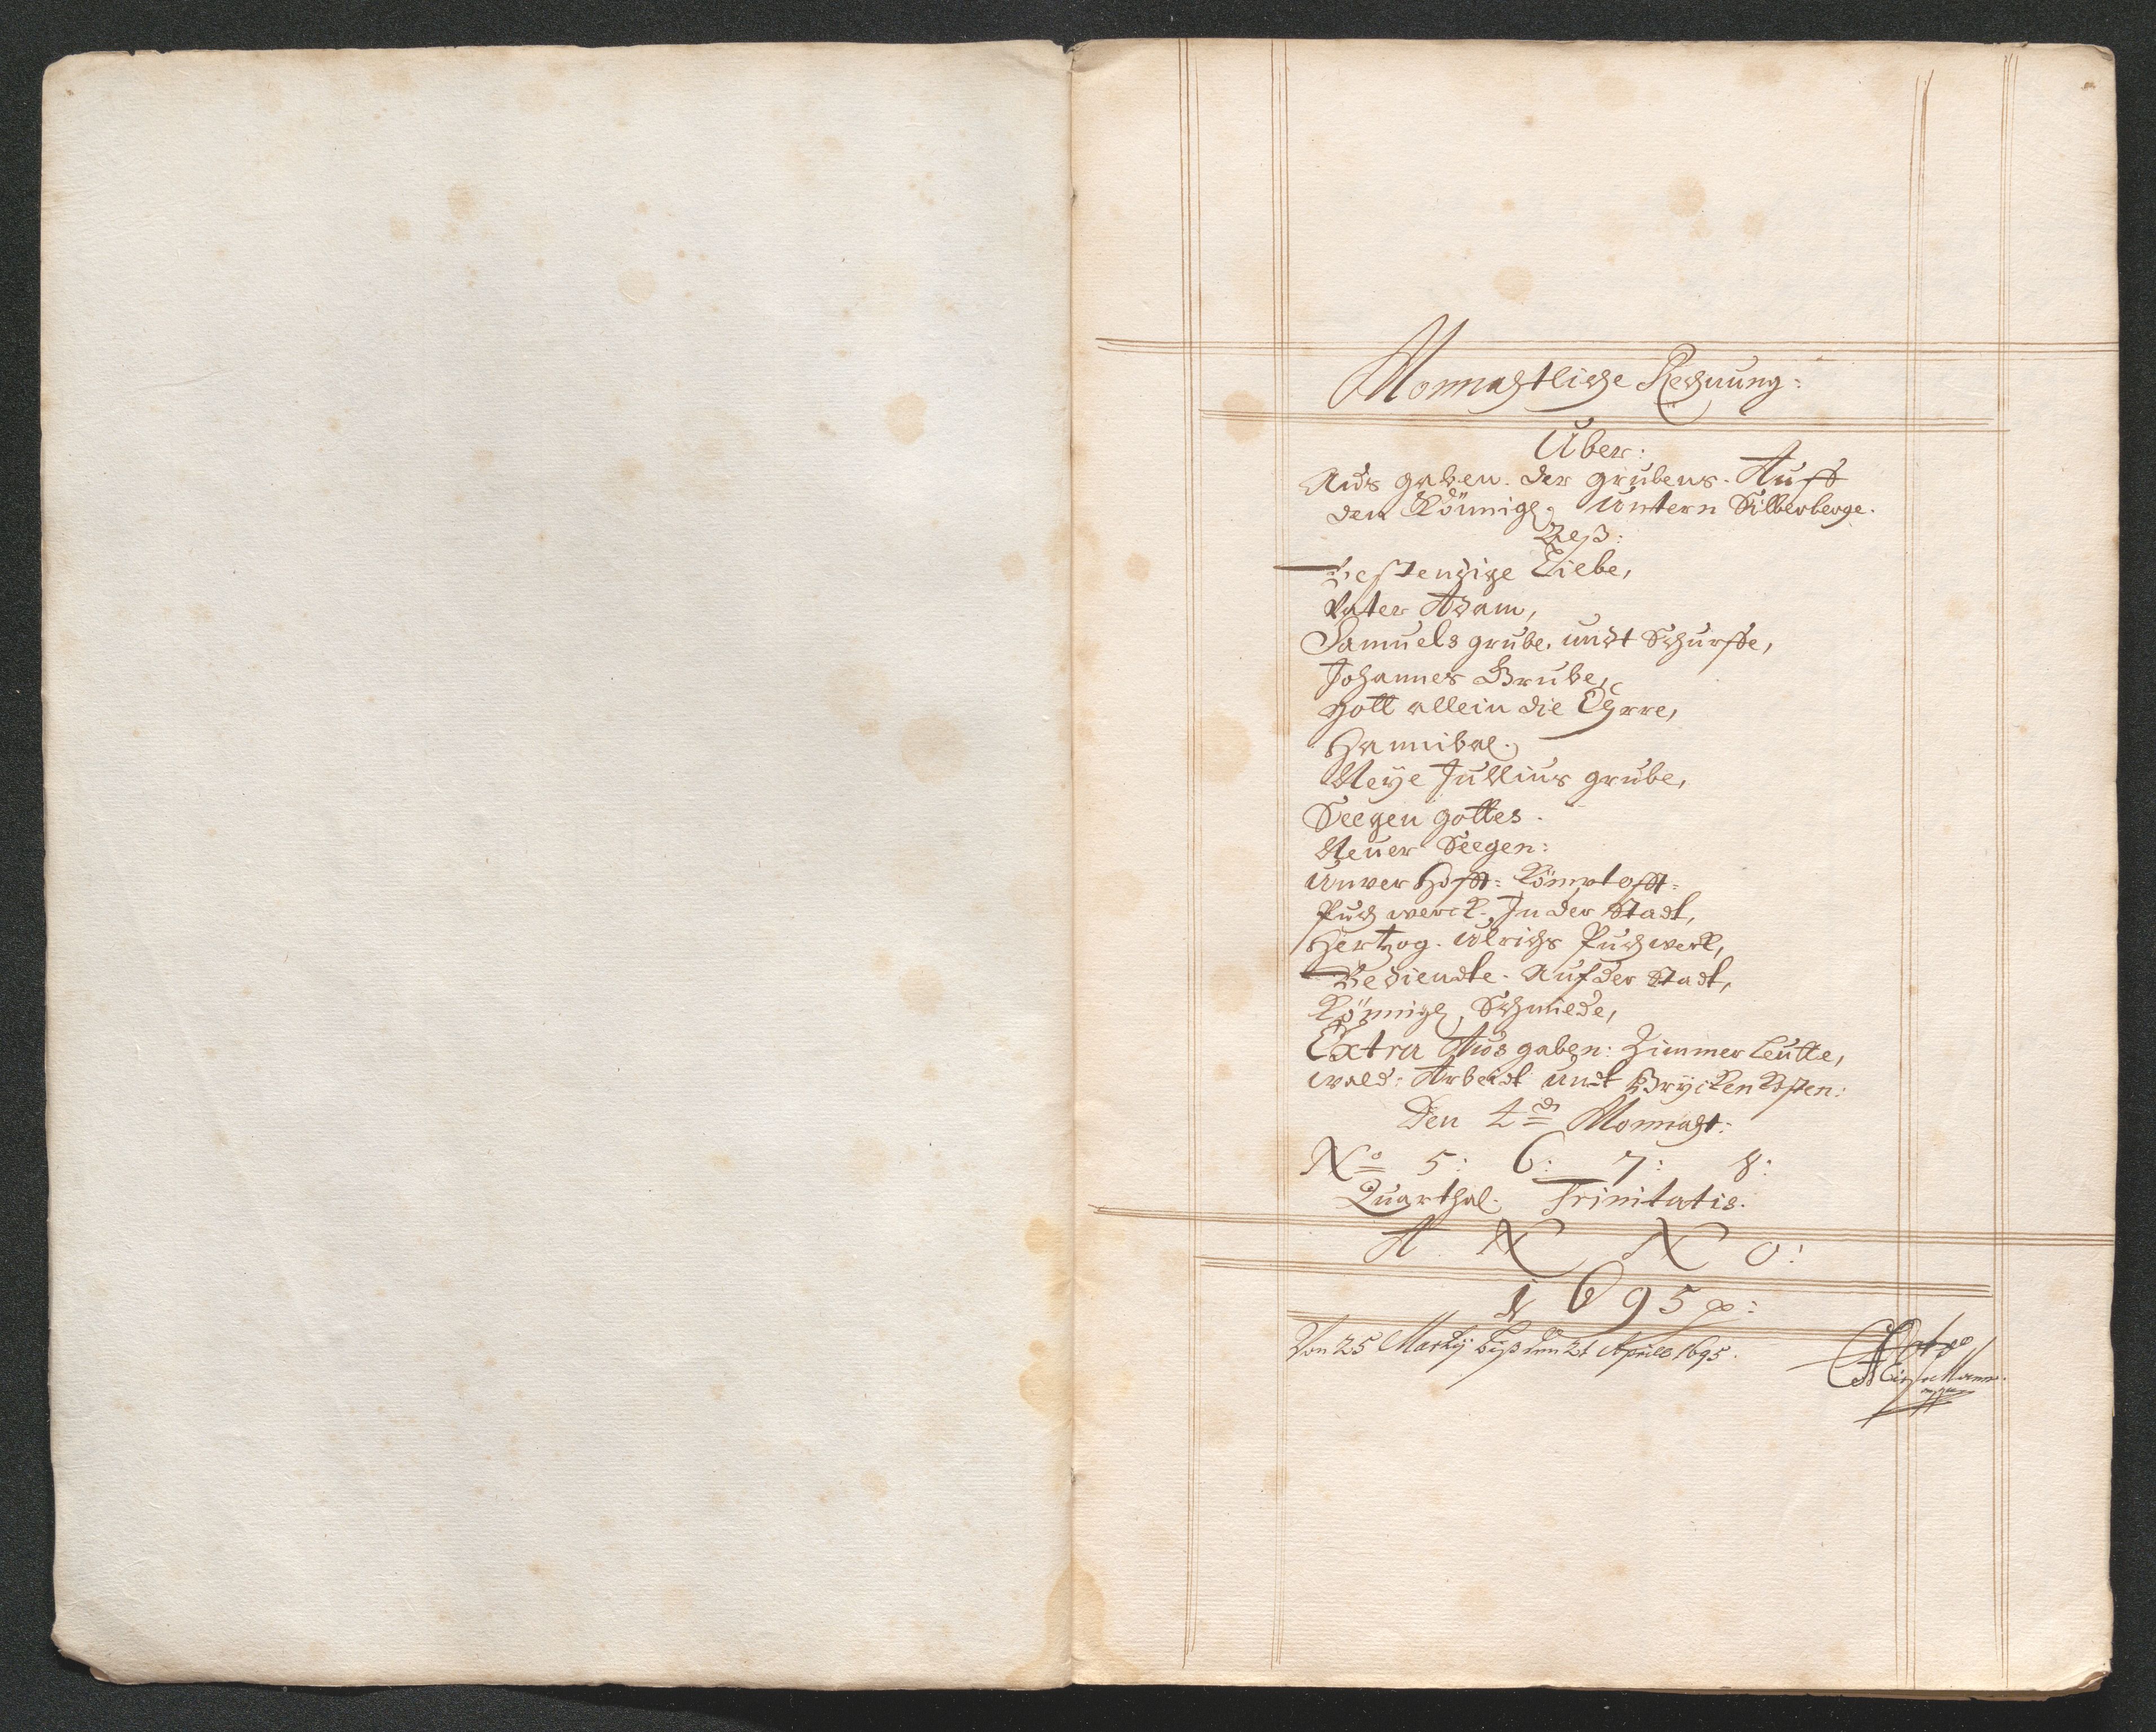 Monnahtliche Rechnung:
Über:
Aus gaben. der grubens. Auff
den Könnigl. Untern Silberberge.
Beß:
Bestendige Liebe,
Vater Adam,
Samuels grube. undt Schurffe,
Johannes Grube,
gott allein die Ehrre,
Hannibal.
Neye Jullius grube,
Seegen gottes.
Neuer Seegen:
Unver hofft: Kömptofft:
Puch werck. In der Stadt,
Hertzog. Ulrichs Puchwerk,
Bediendte. Auf der Stadt,
Könnigl. Schmiede,
Extra Aus gaben: Zimmer leutte,
wald: Arbeidt undt Brücken
Den 2 Monnaht:
No 5: 6: 7: 8:
Quarthal. Trinitatis.
A N N O:
1695
Von 25 Martij biß den 21 Aprill 1695.